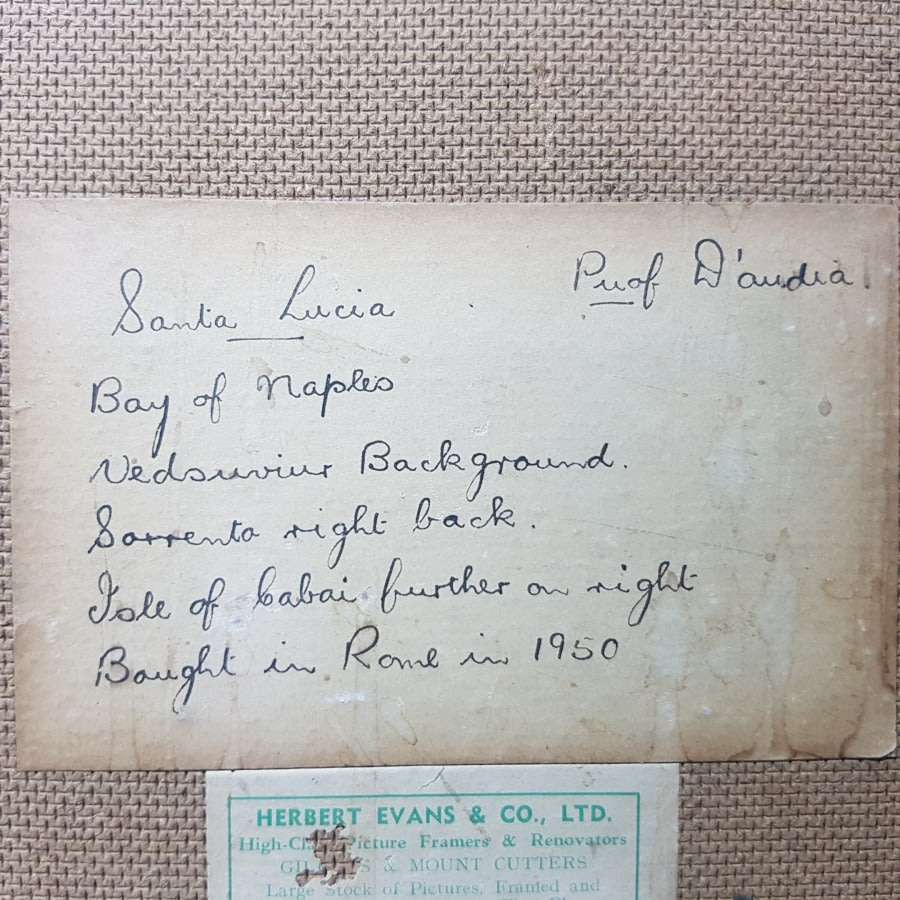 Santa Lucia . Prof D'audia.
Bay of Naples
Vedsuvius Background.
Sorrento right back.
Isle of Cabai further on right
Bought in Rome in 1950
HERBERT EVANS & CO., LTD.
Picture Framers & Renovators
& MOUNT CUTTERS
Large Stock of Pictures, Framed and